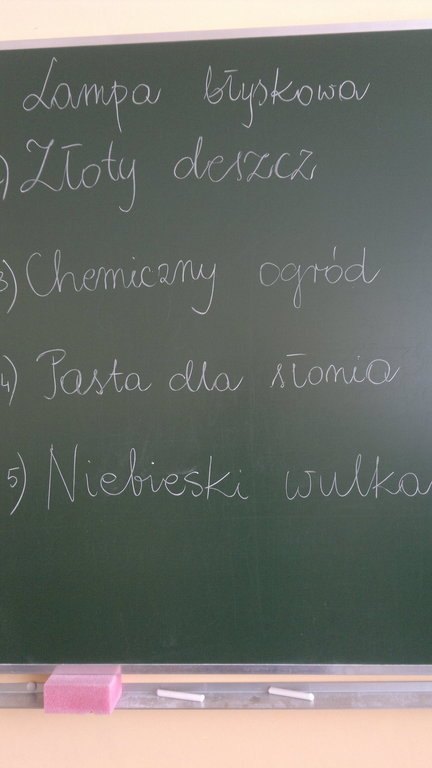 Lampa błyskowa
) Złoty deszcz
3) Chemiczny ogród
4) Pasta dla słonia
5) Niebieski wulka